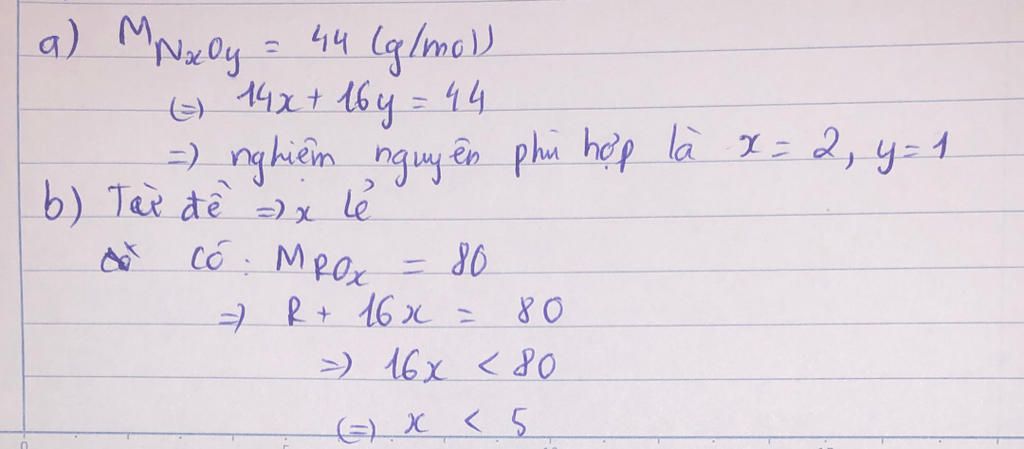 a) M_NxOy = 44 (g/mol)
(=) 14x + 16y = 44
=) nghiệm nguyên phù hợp là x = 2, y = 1
b) Từ đề =) x lẻ
có: M_ROx = 80
=) R + 16x = 80
=) 16x < 80
(=) x < 5